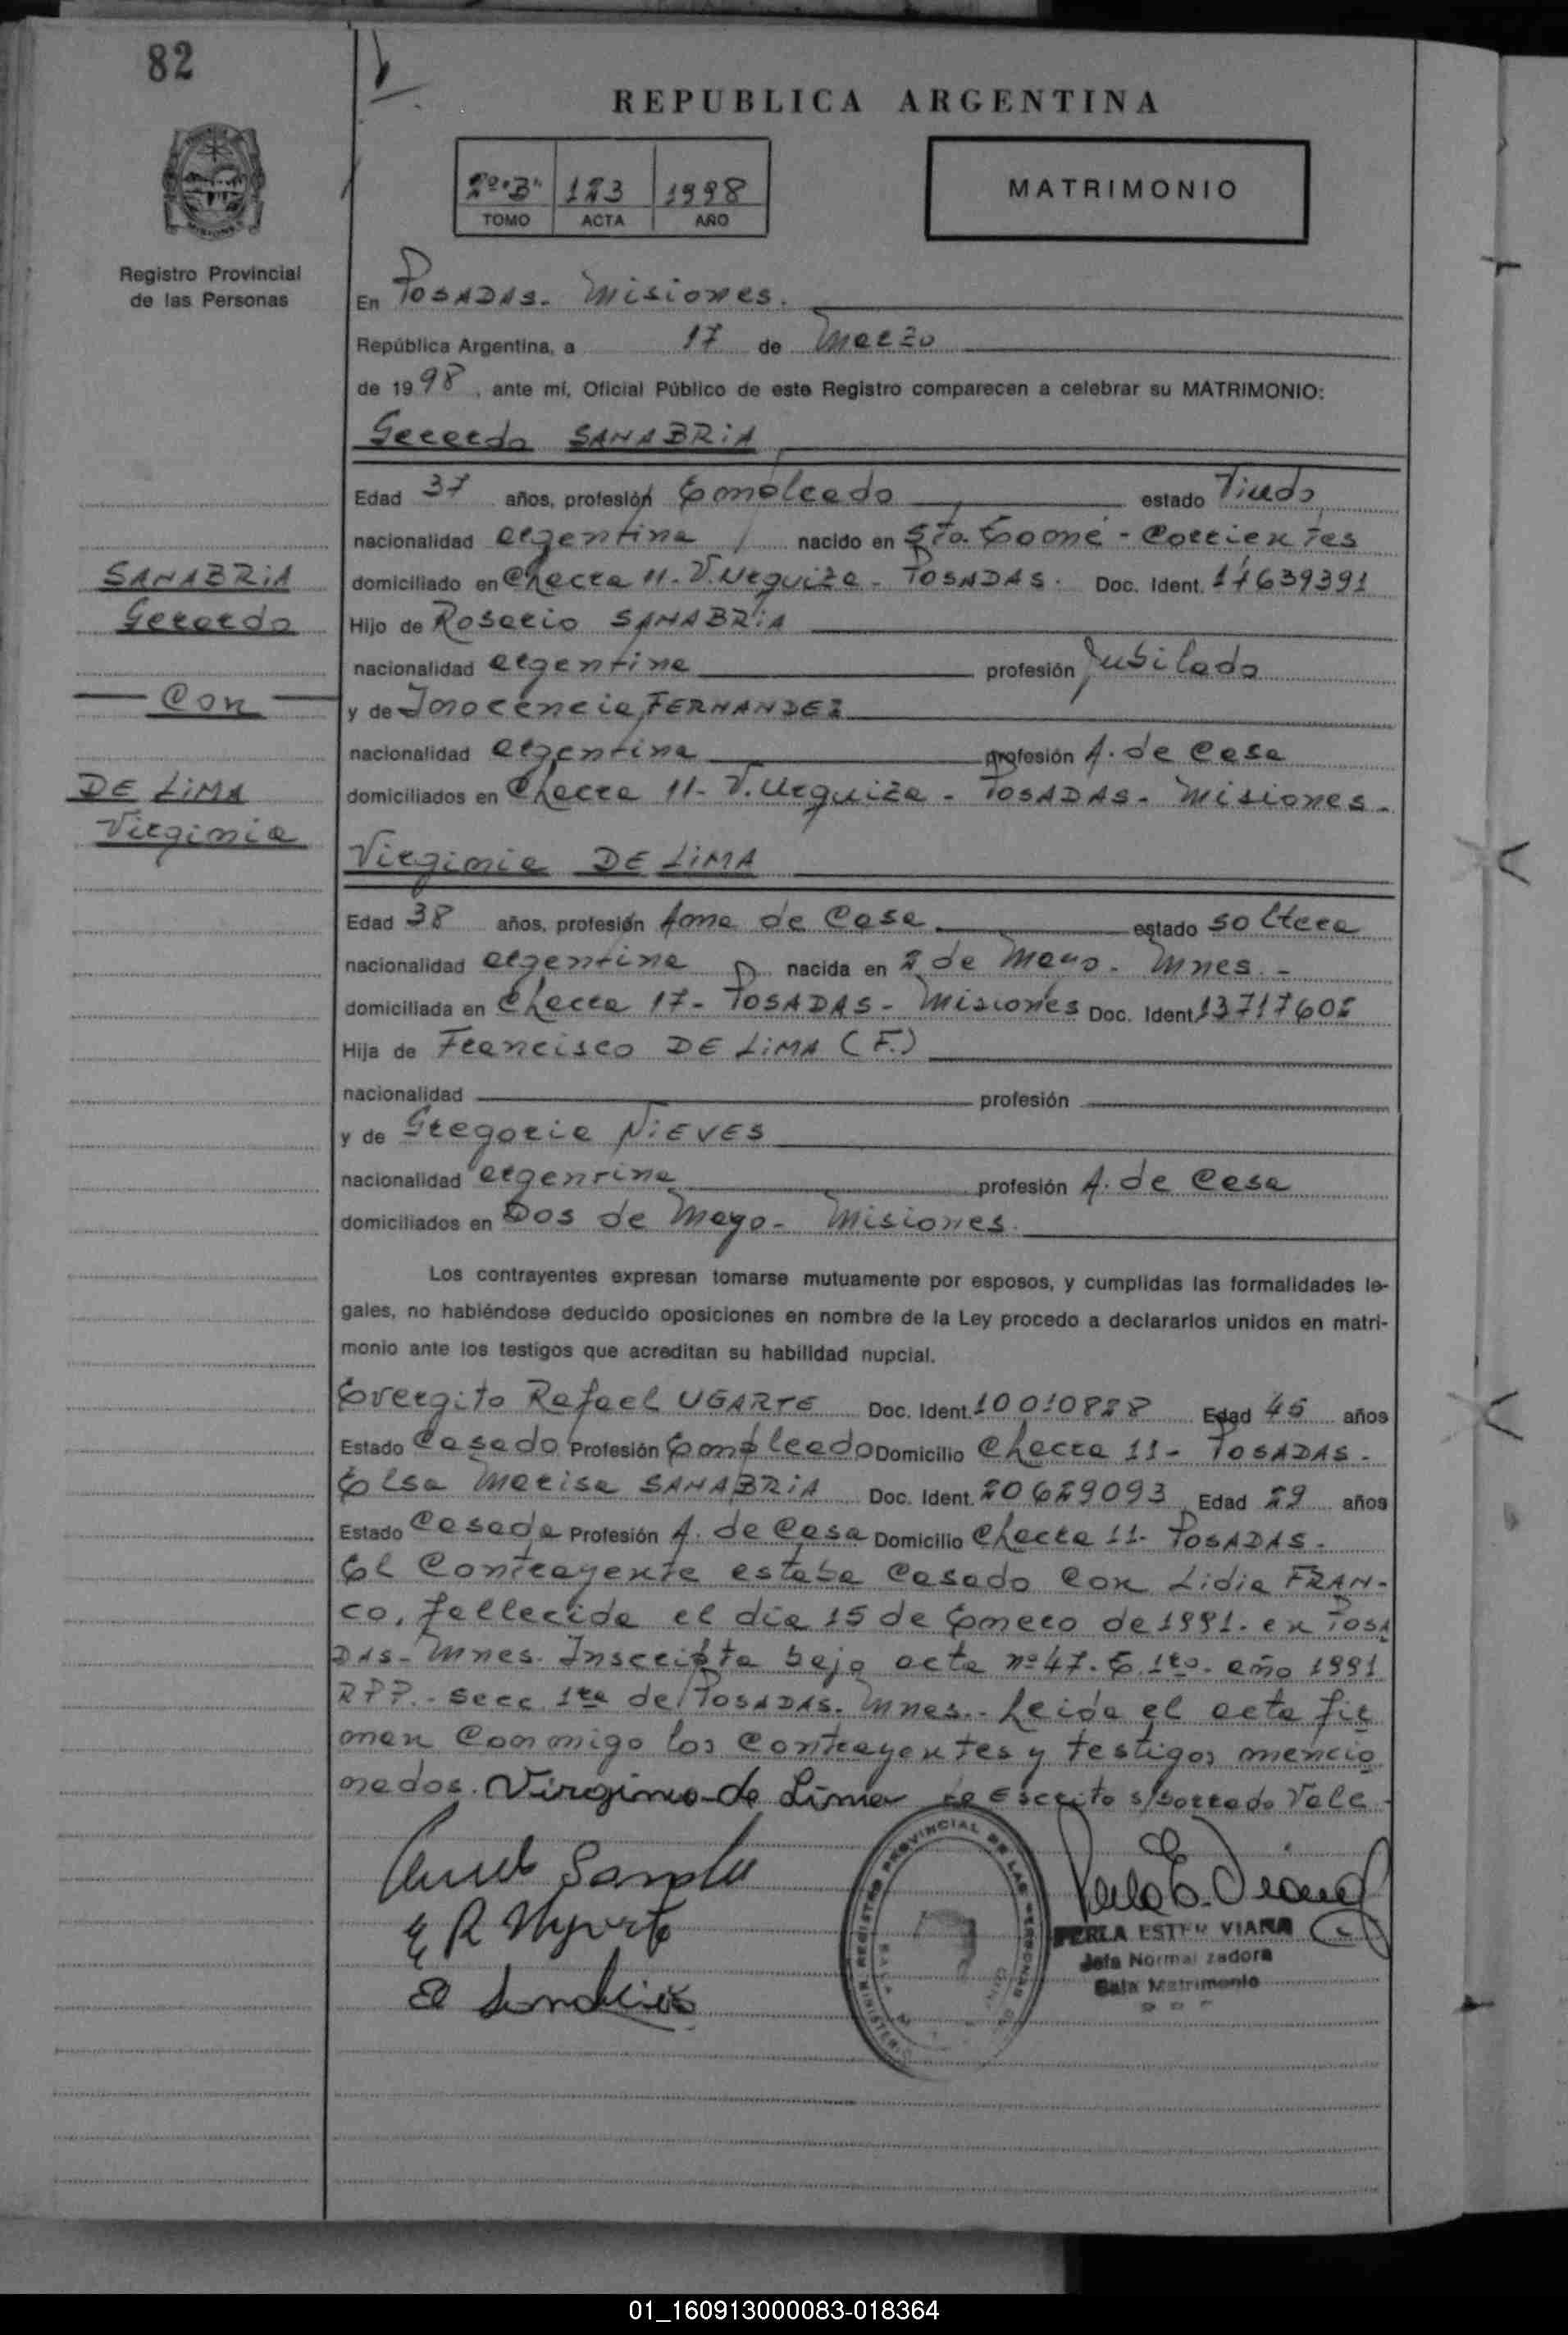 82
REPUBLICA ARGENTINA
2º "B" 123 1998
TOMO ACTA AÑO
MATRIMONIO
Registro Provincial
de las Personas
En POSADAS. Misiones.
República Argentina, a 17 de Marzo
de 1998, ante mí, Oficial Público de este Registro comparecen a celebrar su MATRIMONIO:
Gerardo SANABRiA
Edad 37 años, profesión Empleado estado Viudo
nacionalidad argentina nacido en Sto. Tomé - Corrientes
domiciliado en Chacra 11 - V. Urquiza - POSADAS. Doc. Ident. 17639391
Hijo de Rosario SANABRiA
nacionalidad argentina profesión Jubilado
y de Inocencia FERNANDEZ
nacionalidad argentina profesión A. de Casa
domiciliados en Chacra 11 - V. Urquiza - POSADAS - Misiones -
SANABRiA
Gerardo
Con
DE LiMA
Virginia
Virginia DE LiMA
Edad 38 años, profesión Ama de Casa estado soltera
nacionalidad argentina nacida en 2 de Mayo - Mnes. -
domiciliada en Chacra 17 - POSADAS - Misiones Doc. Ident.
Hija de Francisco DE LiMA (F.)
nacionalidad profesión
y de Gregoria NiEVES
nacionalidad argentina profesión A. de Casa
domiciliados en Dos de Mayo - Misiones.
Los contrayentes expresan tomarse mutuamente por esposos, y cumplidas las formalidades le-
gales, no habiéndose deducido oposiciones en nombre de la Ley procedo a declararlos unidos en matri-
monio ante los testigos que acreditan su habilidad nupcial.
Evergito Rafael UGARTE Doc. Ident. 10010828 Edad 45 años
Estado Casado Profesión Empleado Domicilio Chacra 11 - POSADAS -
Elsa Marisa SANABRiA Doc. Ident. 20629093 Edad 29 años
Estado Casada Profesión A. de Casa Domicilio Chacra 11 - POSADAS -
El Contrayente estaba Casado Con Lidia FRAN-
CO, fallecida el día 15 de Enero de 1991. en POSA
DAS - Mnes. Inscripta bajo acta nº 47. T. 1ro. año 1991
RPP. - Secc 1ra de POSADAS. Mnes. - Leida el acta fir
man Conmigo los Contrayentes y testigos mencio
nados. Virginia de Lima Escrito s/borrado Vale -
E R Ugarte
PERLA ESTER VIANA
Jefa Normalizadora
Sala Matrimonio
MINISTERIO REGISTRO PROVINCIAL DE LAS PERSONAS
01_160913000083-018364